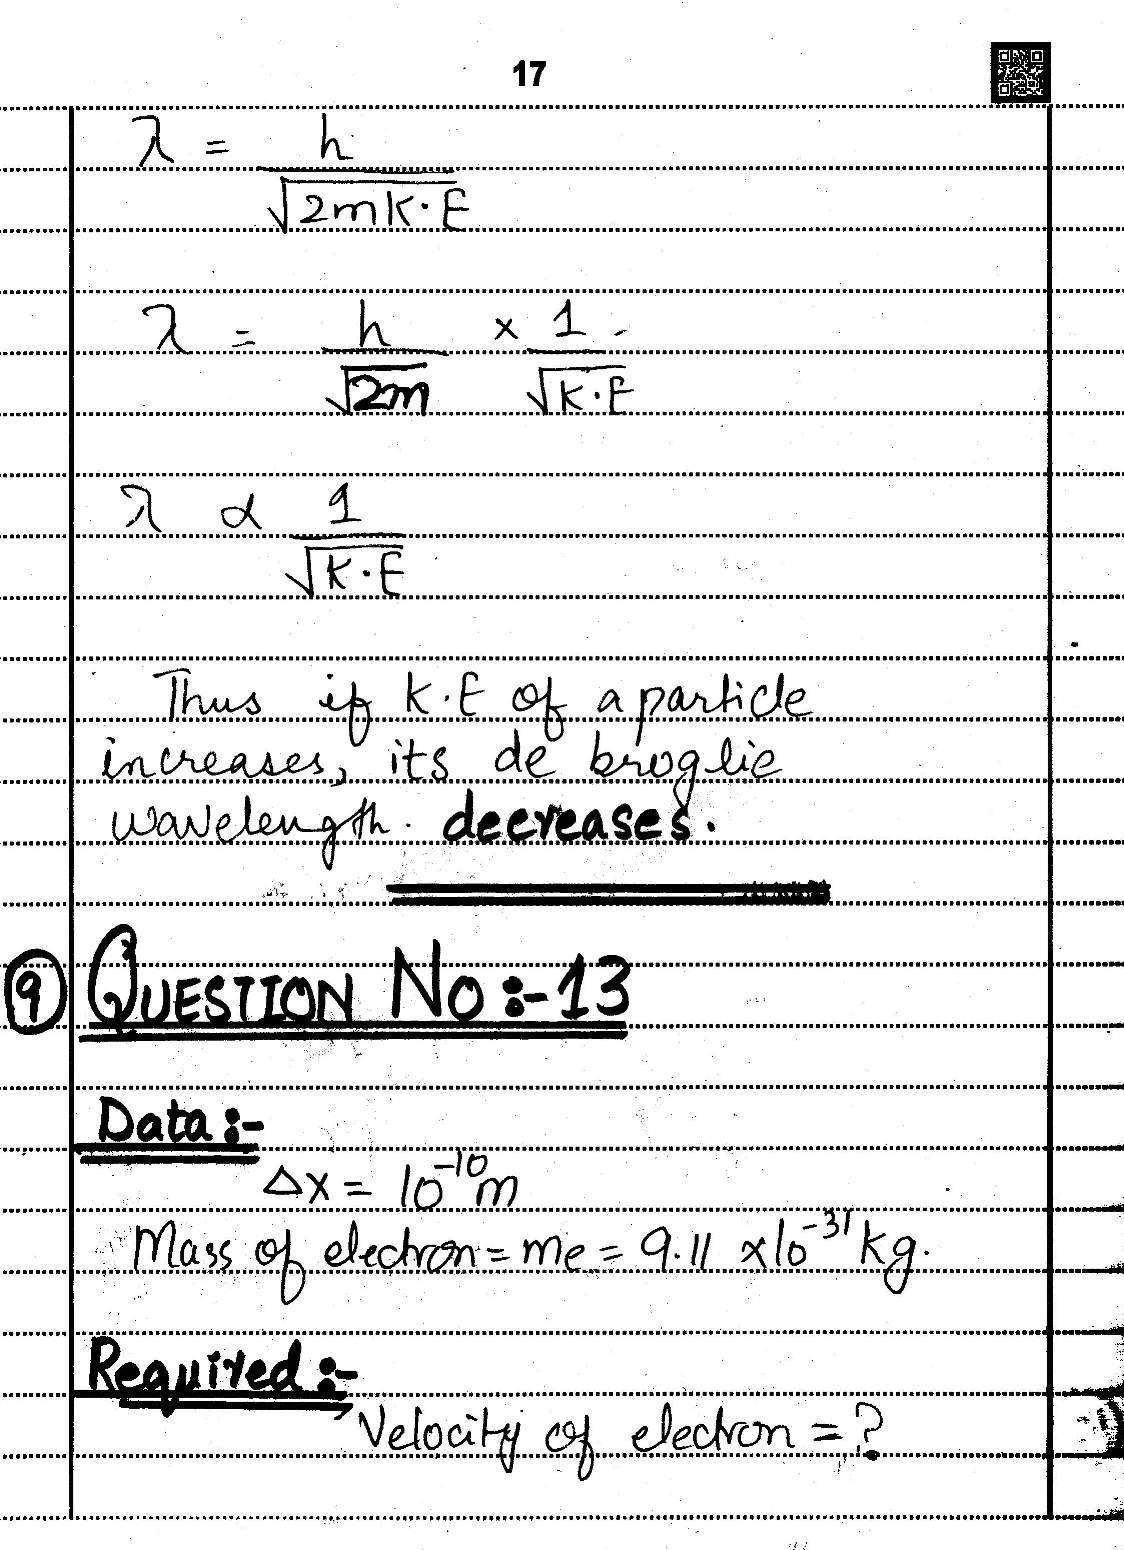 17
λ = h / √2mK·E
λ = h / √2m × 1 / √K·E
λ ∝ 1 / √K·E
Thus if K.E of a particle
increases, its de broglie
wavelength. decreases.
9 QUESTION No:-13
Data:-
Δx = 10⁻¹⁰m
Mass of electron = me = 9.11 x10⁻³¹ kg.
Required:-
Velocity of electron = ?